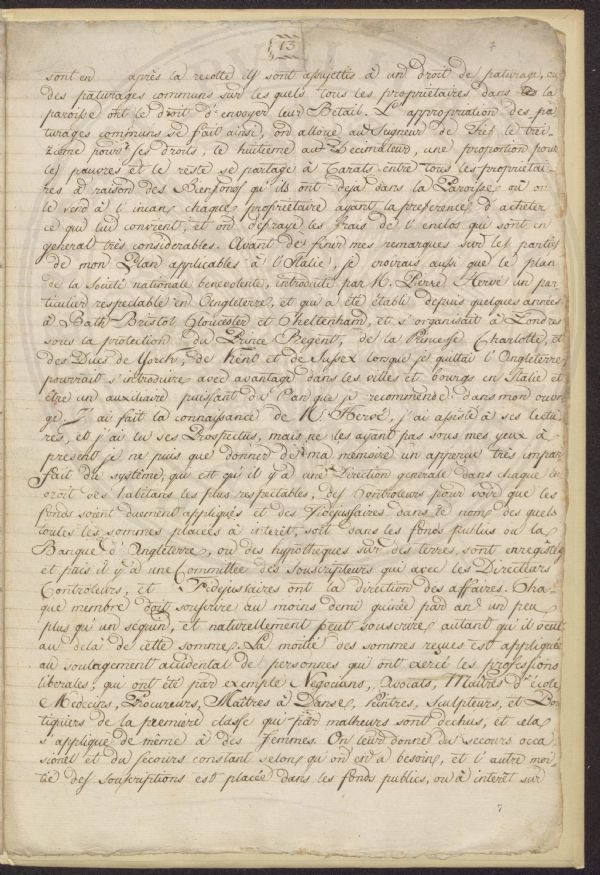 13
7
sont en après la recolte ils sont assujettis à un droit de paturage, ou
des paturages communs sur les quels tous les proprietaires dans la
paroisse ont le droit d'envoyer leur Betail. L'appropriation des pa-
turages communs se fait ainsi, on alloue au Seigneur de Fief le trei-
zieme pour ses droits, le huitieme au Decimateur, une proportion pour
les pauvres et le reste se partage à Carats entre tous les proprietai-
res à raison des Bienfonds qu'ils ont deja dans la Paroisse ou on
le vend à l'incan chaque proprietaire ayant la preference d'acheter
ce qui lui convient, et on defraye les frais de l'enclos qui sont en
general très considerables. Avant de finir mes remarques sur les parties
de mon Plan applicables à l'Italie, je croirais aussi que le plan
de la Societé nationale benevolente, introduite par M. Pierre Hervé un par-
ticulier respectable en Angleterre, et qui a été établi depuis quelques années
à Bath Bristol Gloucester et Cheltenham, et s'organisait à Londres
sous la protection du Prince Regent, de la Princesse Charlotte, et
des Ducs de Yorch, de Kent et de Sussex lorsque je quittai l'Angleterre
pourrait s'introduire avec avantage dans les villes et bourgs en Italie et
être un auxiliaire puissant du Plan que je recommende dans mon ouvra-
ge. J'ai fait la connaissance de M. Hervé, j'ai assisté à ses lectu-
res, et j'ai lu ses Prospectus, mais ne les ayant pas sous mes yeux à
present je ne puis que donner de ma memoire un apperçu très impar-
fait du système, qui est qu'il y a une Direction generale dans chaque en-
droit des habitans les plus respectables, des Controleurs pour voir que les
fonds soient duement appliqués et des Fidejussaires dans le nom des quels
toutes les sommes placées à interêt, soit dans les fonds publics ou la
Banque d'Angleterre, ou des hypotheques sur des terres sont enregistrées
et puis il y a une Committée des Souscripteurs qui avec les Directeurs
Controleurs, et Fidejussaires ont la direction des affaires. Cha-
que membre doit souscrire au moins demi guinée par an un peu
plus qu'un sequin, et naturellement peut souscrire autant qu'il veut
au delà de cette somme. La moitié des sommes reçues est appliquée
au soulagement accidental de personnes qui ont exercé les professions
liberales, qui ont été par exemple Negocians, Avocats, Maitres d'école
Medecins, Procureurs, Maîtres à Danse, Peintres, Sculpteurs, et Bou-
tiquiers de la premiere classe qui par malheurs sont dechus, et cela
s'applique de même à des Femmes. On leur donne du secours occa-
sionel et du secours constant selon qu'on en a besoin, et l'autre moi-
tié des souscriptions est placée dans les fonds publics, ou à interêt sur
7